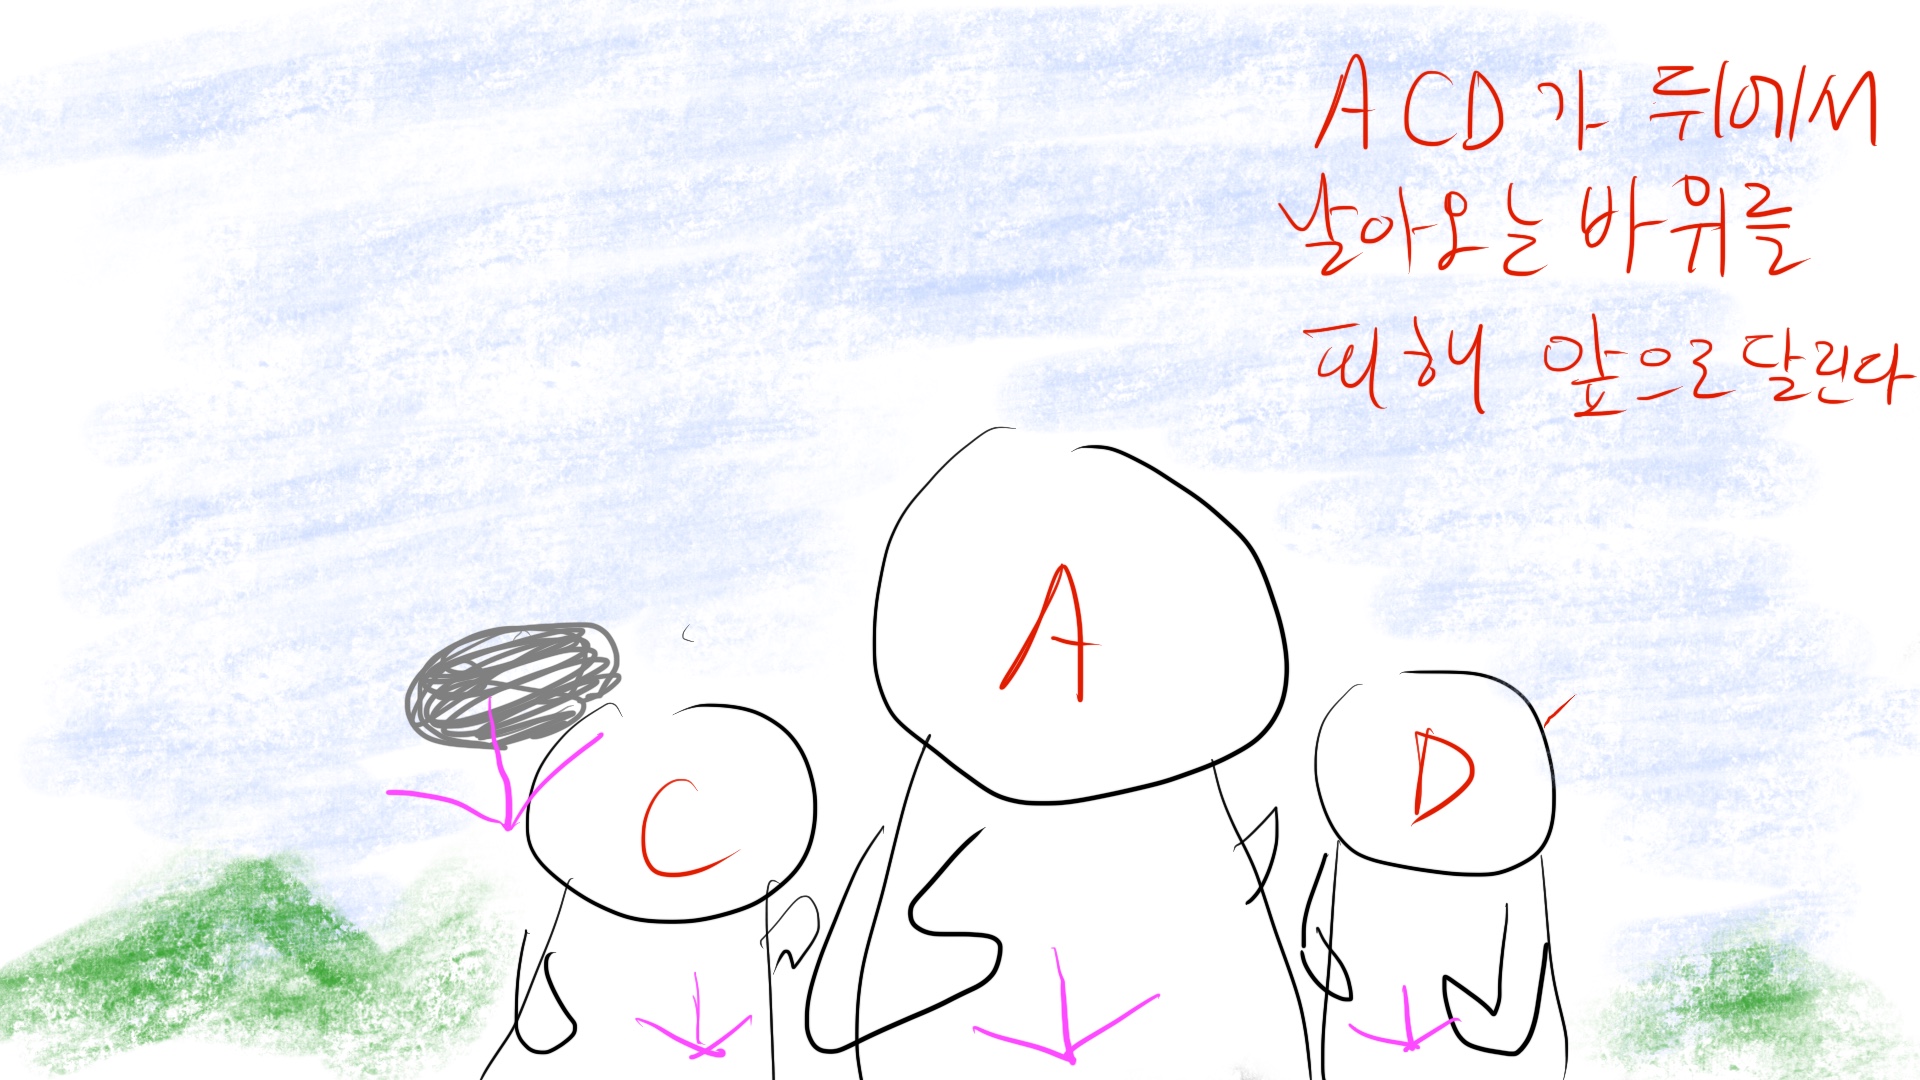 A CD가 뒤에서
날아오는 바위를
피해 앞으로 달린다
A
C
D